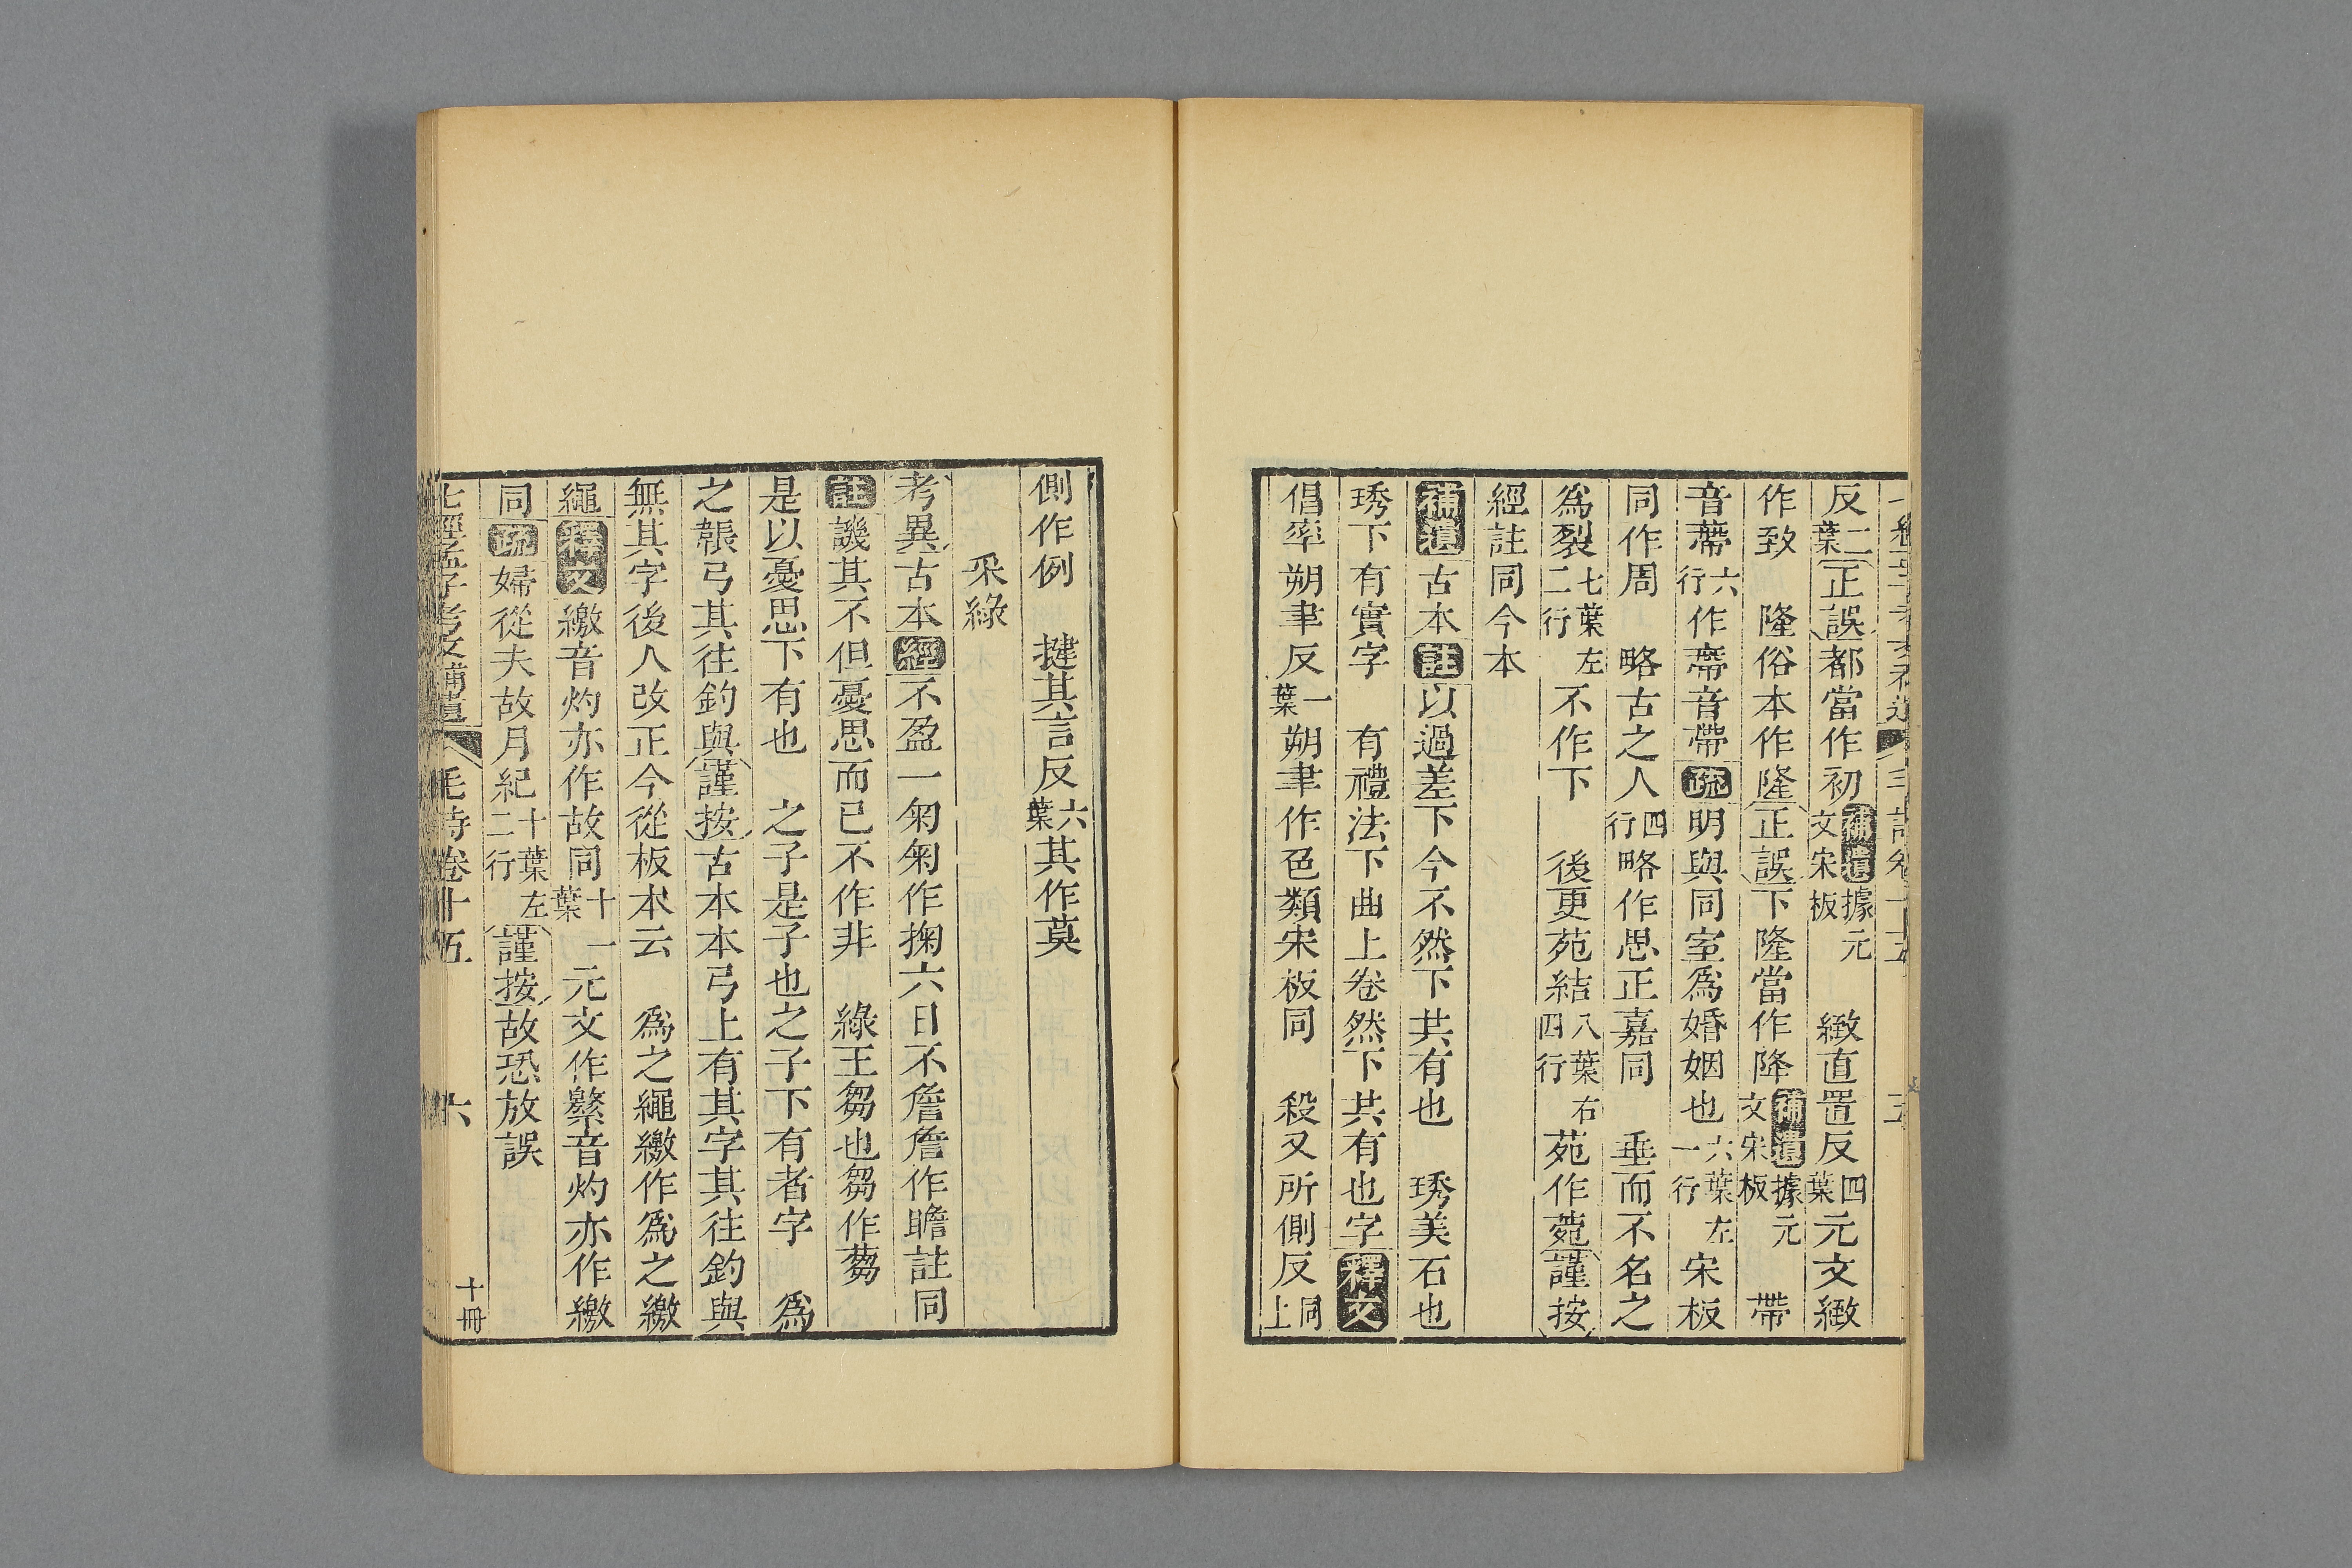 反二葉正誤都當作初補遺據元文宋板　緻直置反四葉元文緻
作致　隆俗本作隆正誤下隆當作降補遺據元文宋板　帶
音蔕六行作帶音帶疏明與同室爲婚姻也六葉左一行宋板
同作周　略古之人四行略作思正嘉同　垂而不名之
爲裂七葉左二行不作下　後更苑結八葉右四行苑作菀謹按
經註同今本
補遺古本註以過差下今不然下共有也　琇美石也
琇下有實字　有禮法下曲上卷然下共有也字釋文
倡率朔聿反一葉朔聿作色類宋板同　殺又所側反同上
側作例　揵其言反六葉其作莫
采綠
考異古本經不盈一匊匊作掬六日不詹詹作瞻註同
註譏其不但憂思而已不作非　綠王芻也芻作蒭
是以憂思下有也　之子是子也之子下有者字　爲
之韔弓其往釣與謹按古本本弓上有其字其往釣與
無其字後人改正今從板本云　爲之繩繳作爲之繳
繩釋文繳音灼亦作故同十一葉元文作繁音灼亦作繳
同疏婦從夫故月紀十葉左二行謹按故恐放誤
七經孟子考文補遺　毛詩卷十五　六　十冊